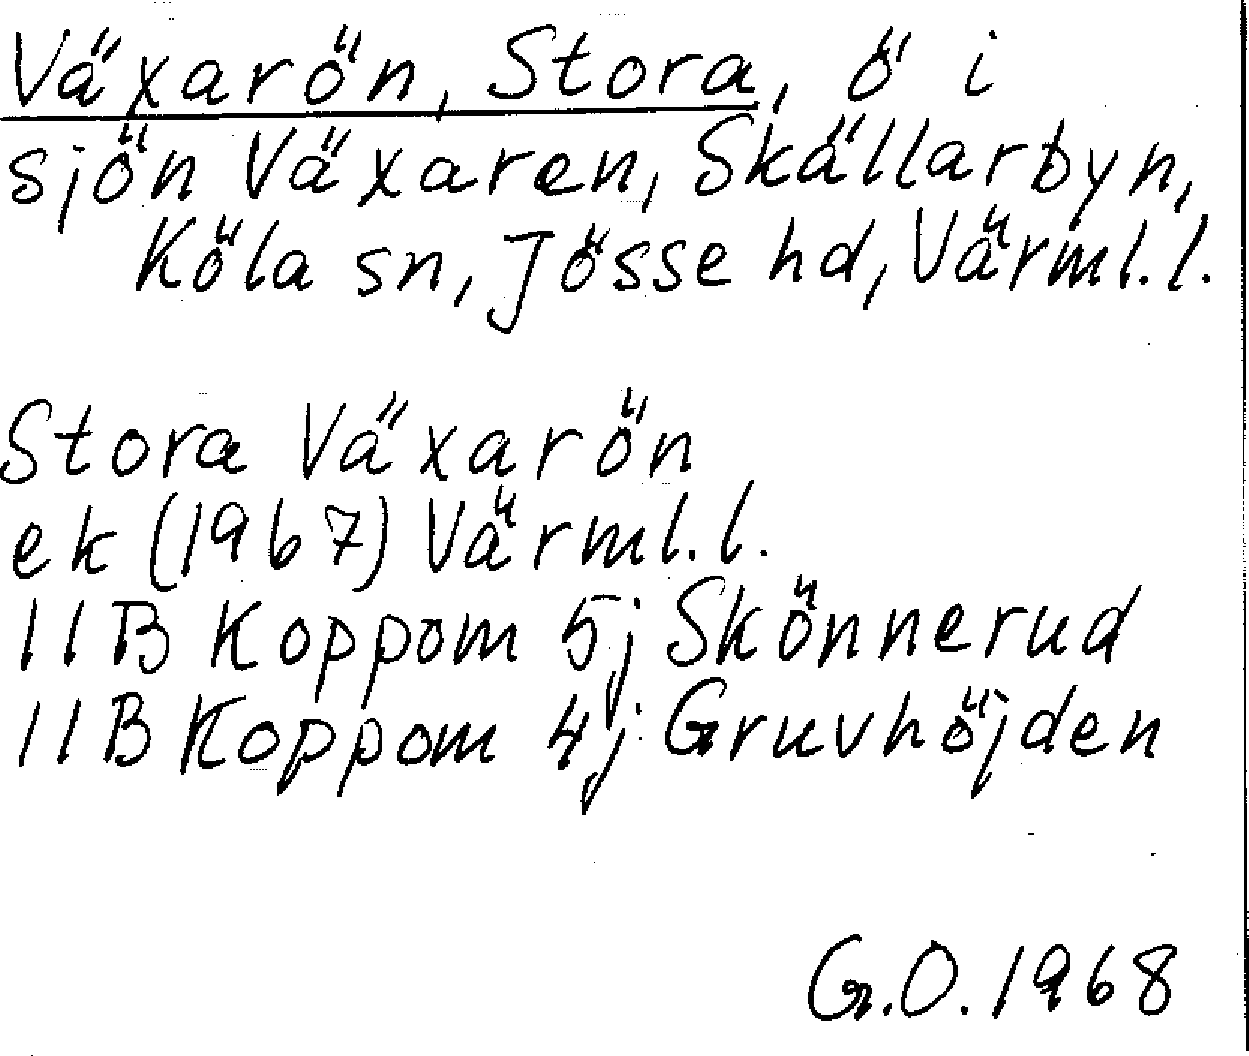 Växarön, Stora, ö i
sjön Växaren, Skällarbyn,
Köla sn, Jösse hd, Värml. l.
Stora Växarön
ek (1967) Värml. l.
11B Koppom 5j Skönnerud
11B Koppom 4j Gruvhöjden
G.O. 1968